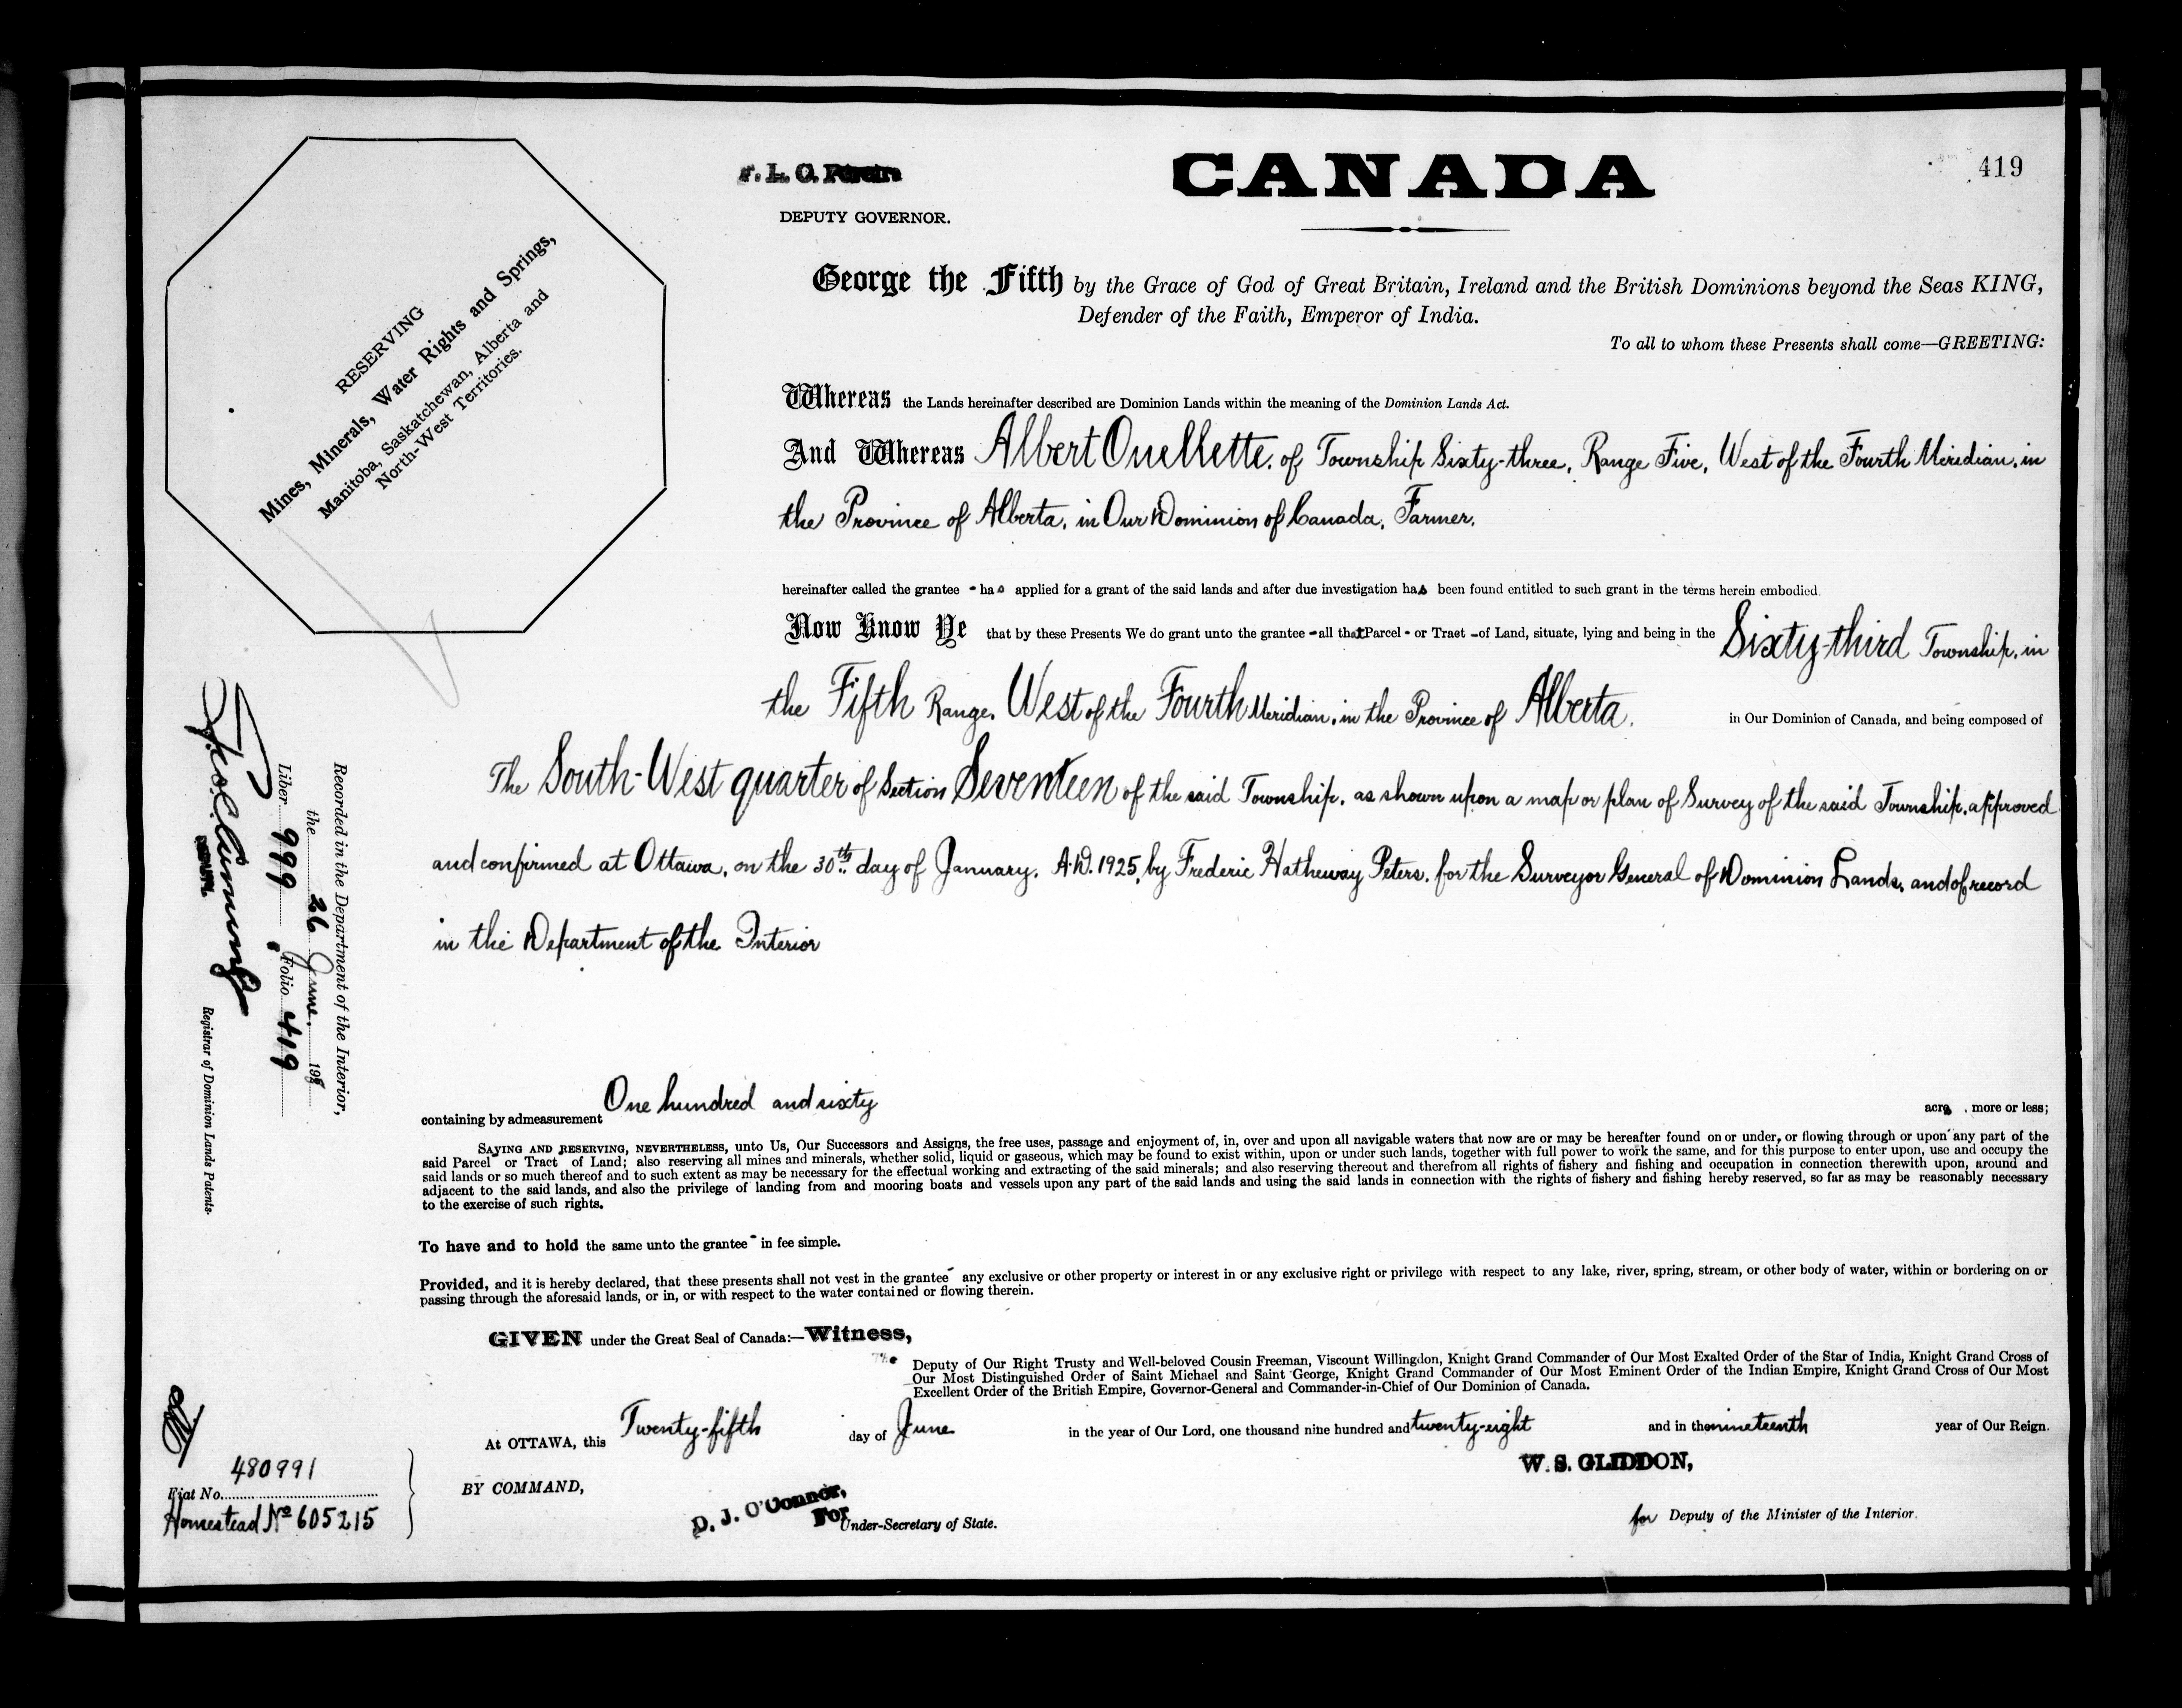 CANADA
419
DEPUTY GOVERNOR.
RESERVING
Mines, Minerals, Water Rights and Springs,
Manitoba, Saskatchewan, Alberta and
North-West Territories.
George the Fifth by the Grace of God of Great Britain, Ireland and the British Dominions beyond the Seas KING,
Defender of the Faith, Emperor of India.
To all to whom these Presents shall come—GREETING:
Whereas the Lands hereinafter described are Dominion Lands within the meaning of the Dominion Lands Act.
And Whereas Albert Ouellette, of Township Sixty-three, Range Five, West of the Fourth Meridian, in
the Province of Alberta, in Our Dominion of Canada, Farmer,
hereinafter called the grantee - has applied for a grant of the said lands and after due investigation has been found entitled to such grant in the terms herein embodied.
Now Know Ye that by these Presents We do grant unto the grantee - all that Parcel - or Tract - of Land, situate, lying and being in the Sixty-third Township, in
the Fifth Range, West of the Fourth Meridian, in the Province of Alberta, in Our Dominion of Canada, and being composed of
The South-West quarter of Section Seventeen of the said Township, as shown upon a map or plan of Survey of the said Township, approved
and confirmed at Ottawa, on the 30th day of January, A.D. 1925, by Frederic Hatheway Peters, for the Surveyor General of Dominion Lands, and of record
in the Department of the Interior
containing by admeasurement One hundred and sixty acres, more or less;
SAVING AND RESERVING, NEVERTHELESS, unto Us, Our Successors and Assigns, the free uses, passage and enjoyment of, in, over and upon all navigable waters that now are or may be hereafter found on or under, or flowing through or upon any part of the
said Parcel or Tract of Land; also reserving all mines and minerals, whether solid, liquid or gaseous, which may be found to exist within, upon or under such lands, together with full power to work the same, and for this purpose to enter upon, use and occupy the
said lands or so much thereof and to such extent as may be necessary for the effectual working and extracting of the said minerals; and also reserving thereout and therefrom all rights of fishery and fishing and occupation in connection therewith upon, around and
adjacent to the said lands, and also the privilege of landing from and mooring boats and vessels upon any part of the said lands and using the said lands in connection with the rights of fishery and fishing hereby reserved, so far as may be reasonably necessary
to the exercise of such rights.
To have and to hold the same unto the grantee - in fee simple.
Provided, and it is hereby declared, that these presents shall not vest in the grantee - any exclusive or other property or interest in or any exclusive right or privilege with respect to any lake, river, spring, stream, or other body of water, within or bordering on or
passing through the aforesaid lands, or in, or with respect to the water contained or flowing therein.
GIVEN under the Great Seal of Canada:—Witness,
The Deputy of Our Right Trusty and Well-beloved Cousin Freeman, Viscount Willingdon, Knight Grand Commander of Our Most Exalted Order of the Star of India, Knight Grand Cross of
Our Most Distinguished Order of Saint Michael and Saint George, Knight Grand Commander of Our Most Eminent Order of the Indian Empire, Knight Grand Cross of Our Most
Excellent Order of the British Empire, Governor-General and Commander-in-Chief of Our Dominion of Canada.
At OTTAWA, this Twenty-fifth day of June in the year of Our Lord, one thousand nine hundred and twenty-eight and in the nineteenth year of Our Reign.
W. S. GLIDDON,
BY COMMAND,
D. J. O'Connor,
For
Under-Secretary of State.
for Deputy of the Minister of the Interior.
Recorded in the Department of the Interior,
the 26 June, 1928
Liber 999, Folio 419
Registrar of Dominion Lands Patents.
480991
Fiat No.
Homestead No 605215